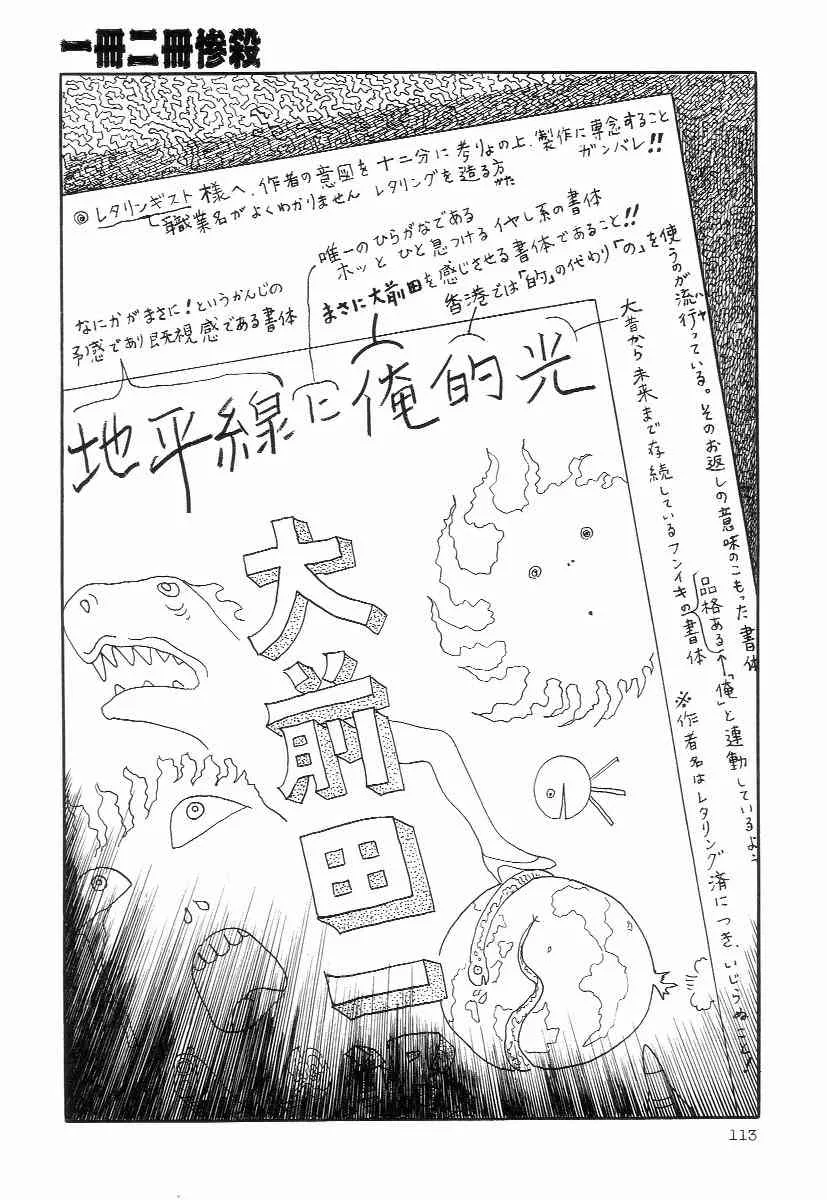 一冊二冊惨殺
◎レタリンギスト様へ、作者の意図を十二分に考りょの上、製作に専念すること
ガンバレ!!
職業名がよくわかりません レタリングを造る方
がた
唯一のひらがなである
ホッと ひと息つける イヤし系の書体
なにかがまさに!というかんじの
予感であり既視感である書体
まさに大前田を感じさせる書体であること!!
香港では「的」の代わり「の」を使うのが流行っている。そのお返しの意味のこもった書体
ハヤ
大昔から未来まで存続しているフンイキの書体
品格ある←「俺」と連動しているよ
※作者名はレタリング済につき、いじらぬこと!
地平線に俺的光
大前田一
113